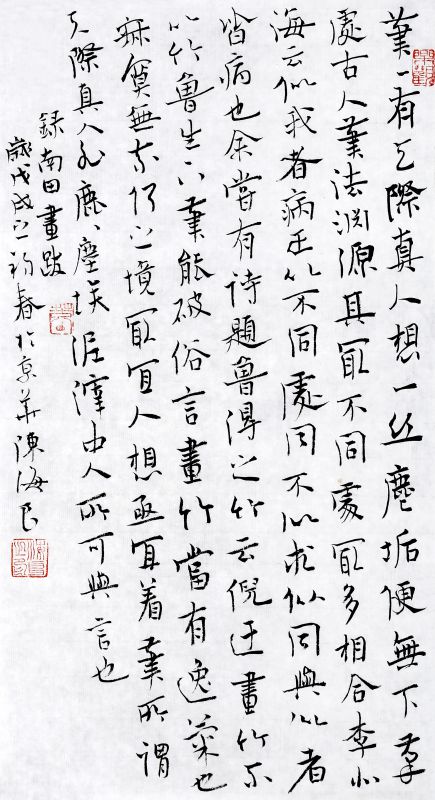 筆一有天際真人想一丝塵垢便無下筆
處古人筆法淵源其冣不同處冣多相合李北
海云似我者病正以不同處同不似求似同與似者
皆病也余嘗有詩題魯得之竹云倪迂畫竹不
似竹魯生下筆能破俗言畫竹當有逸氣也
寂寞無奈何之境冣宜入想亟宜着筆所謂
天際真人非鹿鹿塵埃泥滓中人所可與言也
錄南田畫跋
歲戊戌之初春於京華陳海良